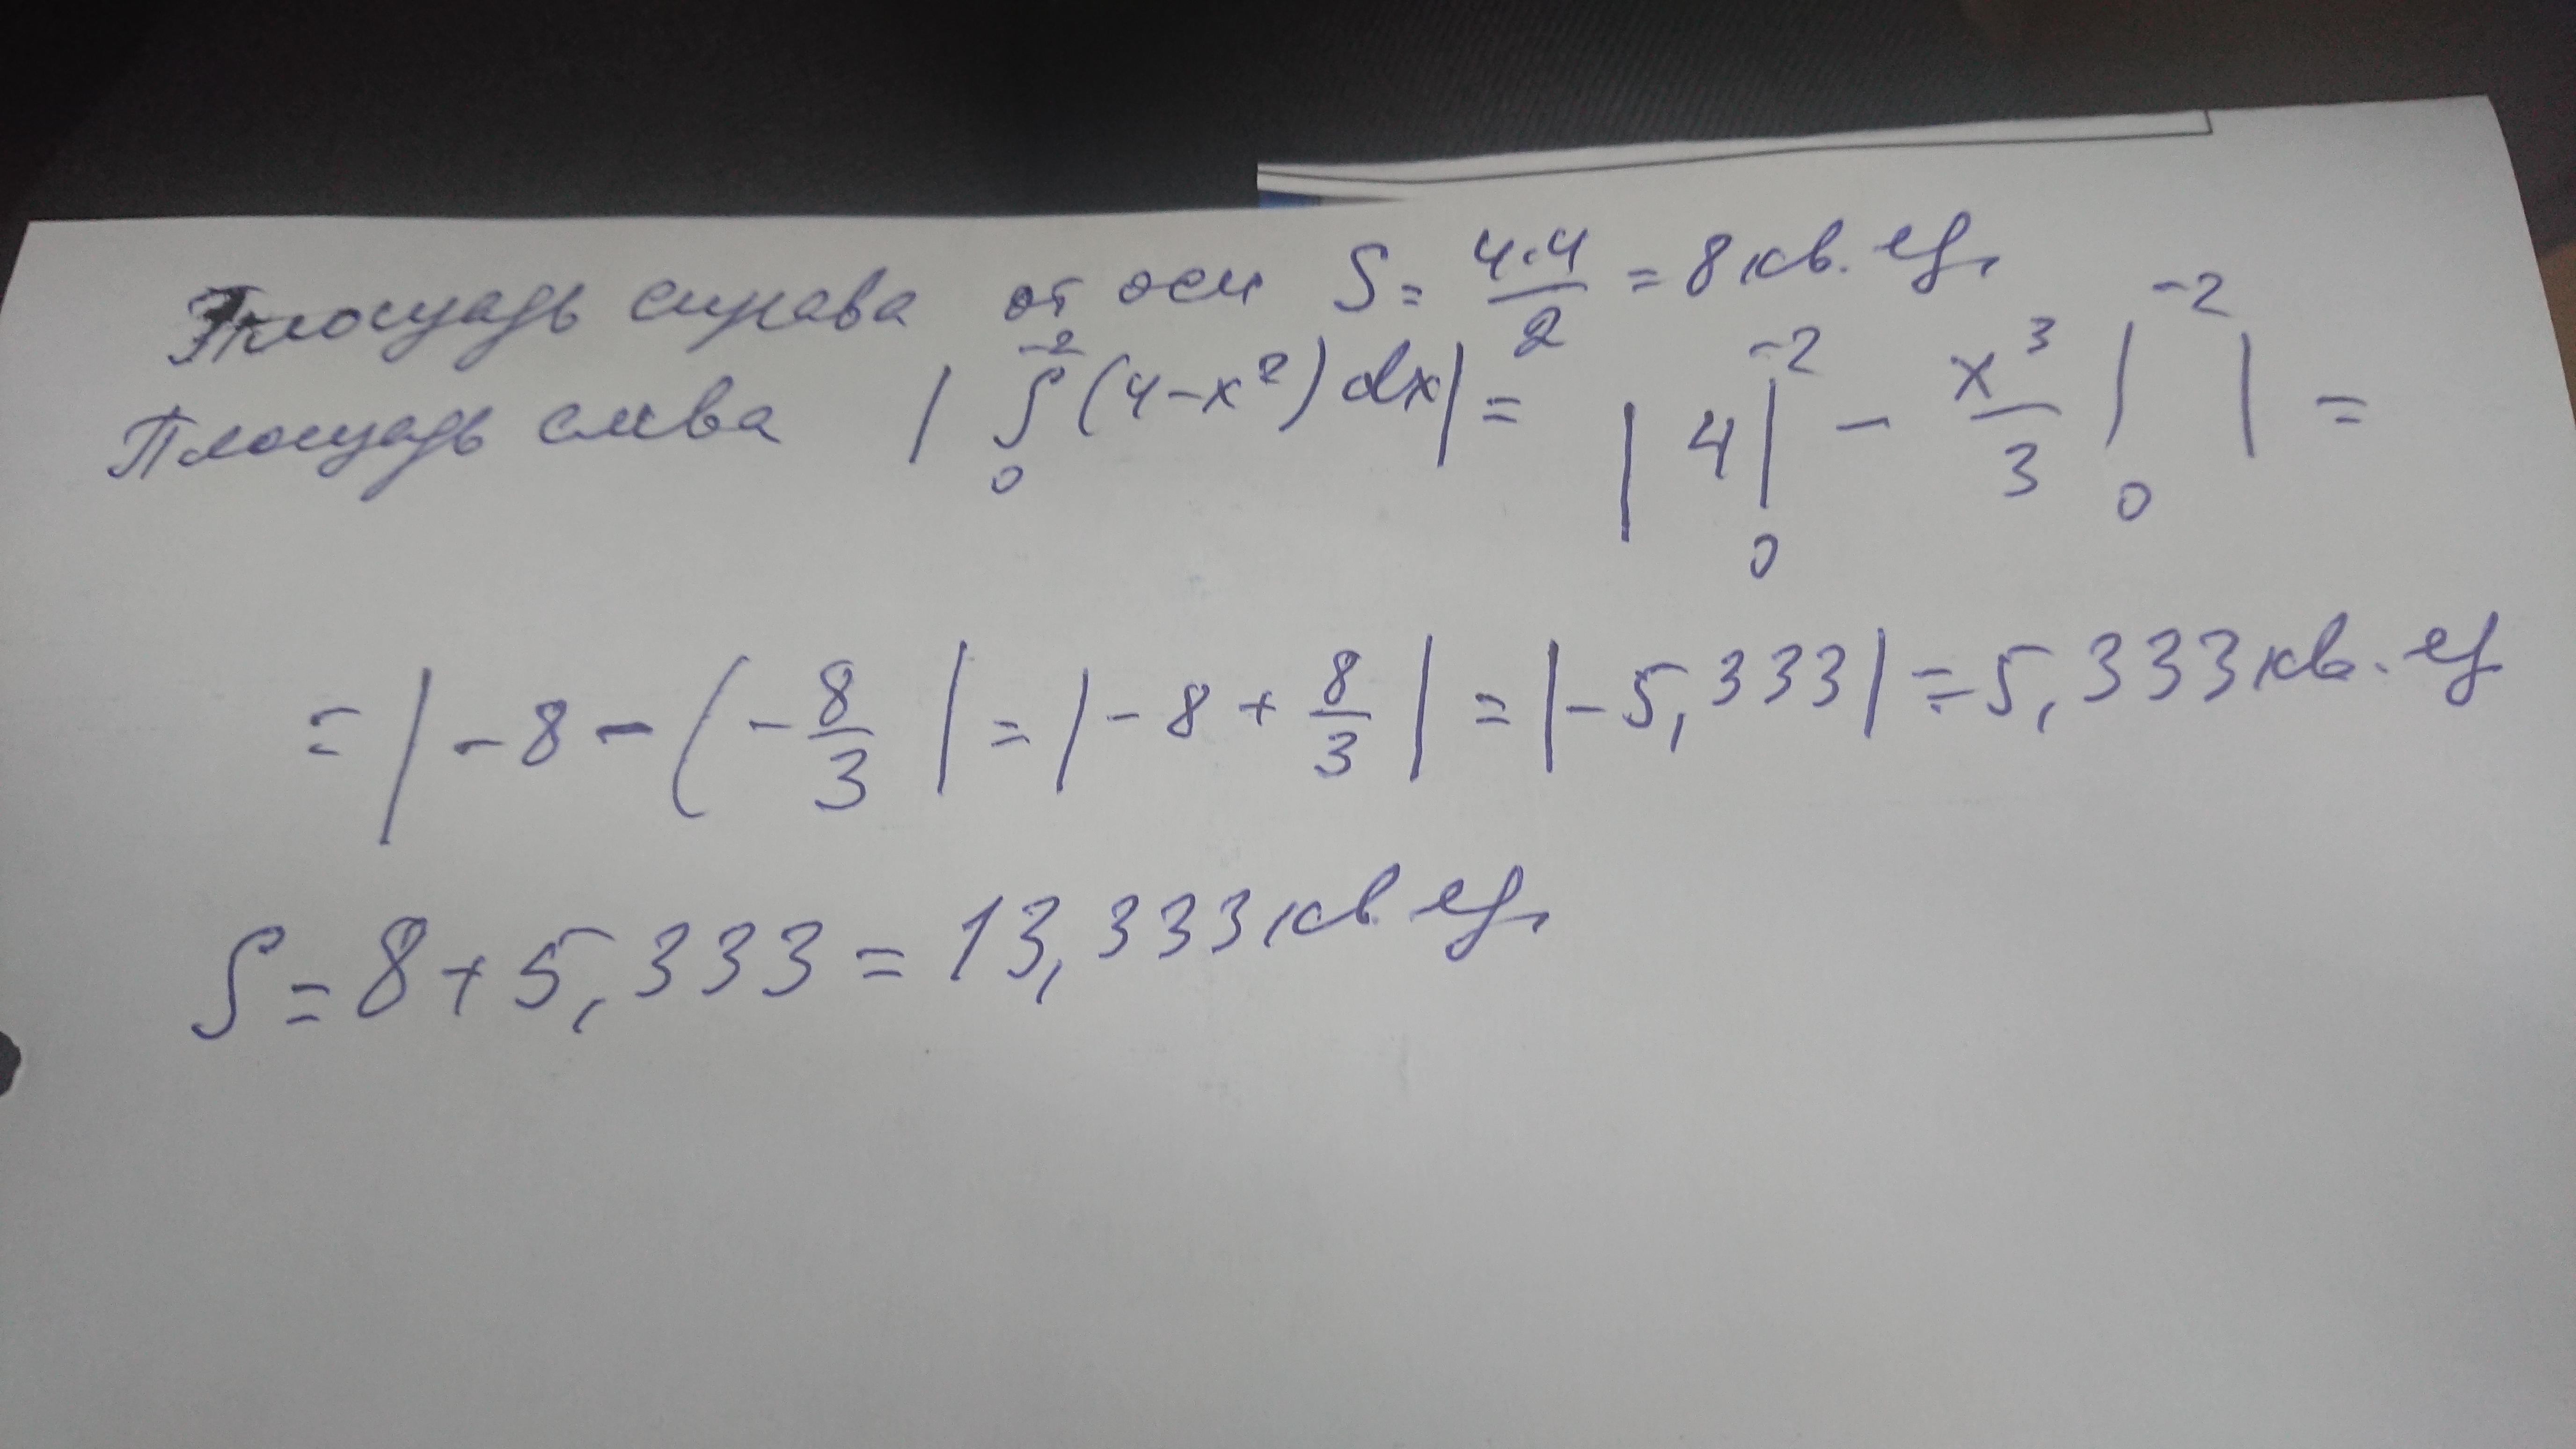 Площадь справа от оси S = 4·4/2 = 8 кв. ед.
Площадь слева |∫₀⁻²(4-x²)dx| = |4|₀⁻² - x³/3|₀⁻²| =
= |-8-(-8/3| = |-8+8/3| = |-5,333| = 5,333 кв. ед
S = 8+5,333 = 13,333 кв ед.